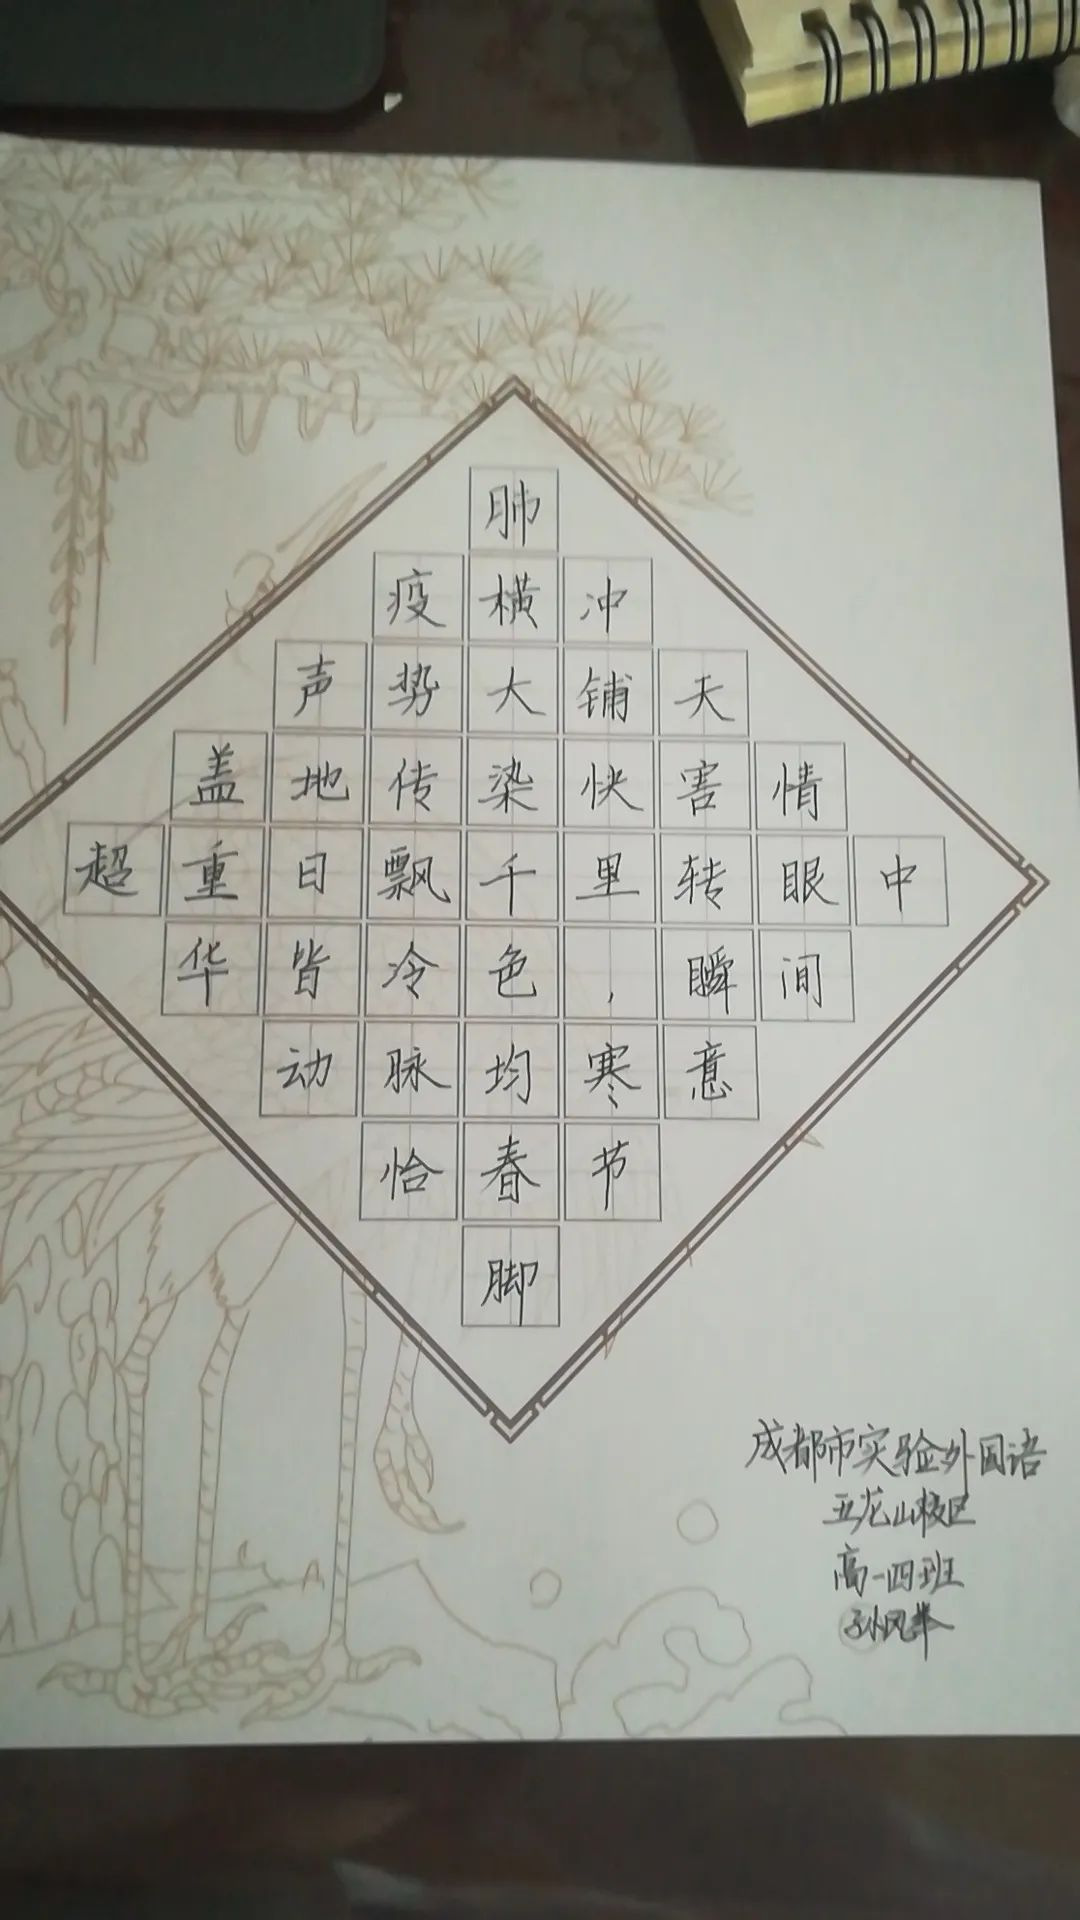 肺
疫横冲
声势大铺天
盖地传染快害情
超重日飘千里转眼中
华皆冷色,瞬间
动脉均寒意
恰春节
脚
成都市实验外国语
五龙山校区
高一四班